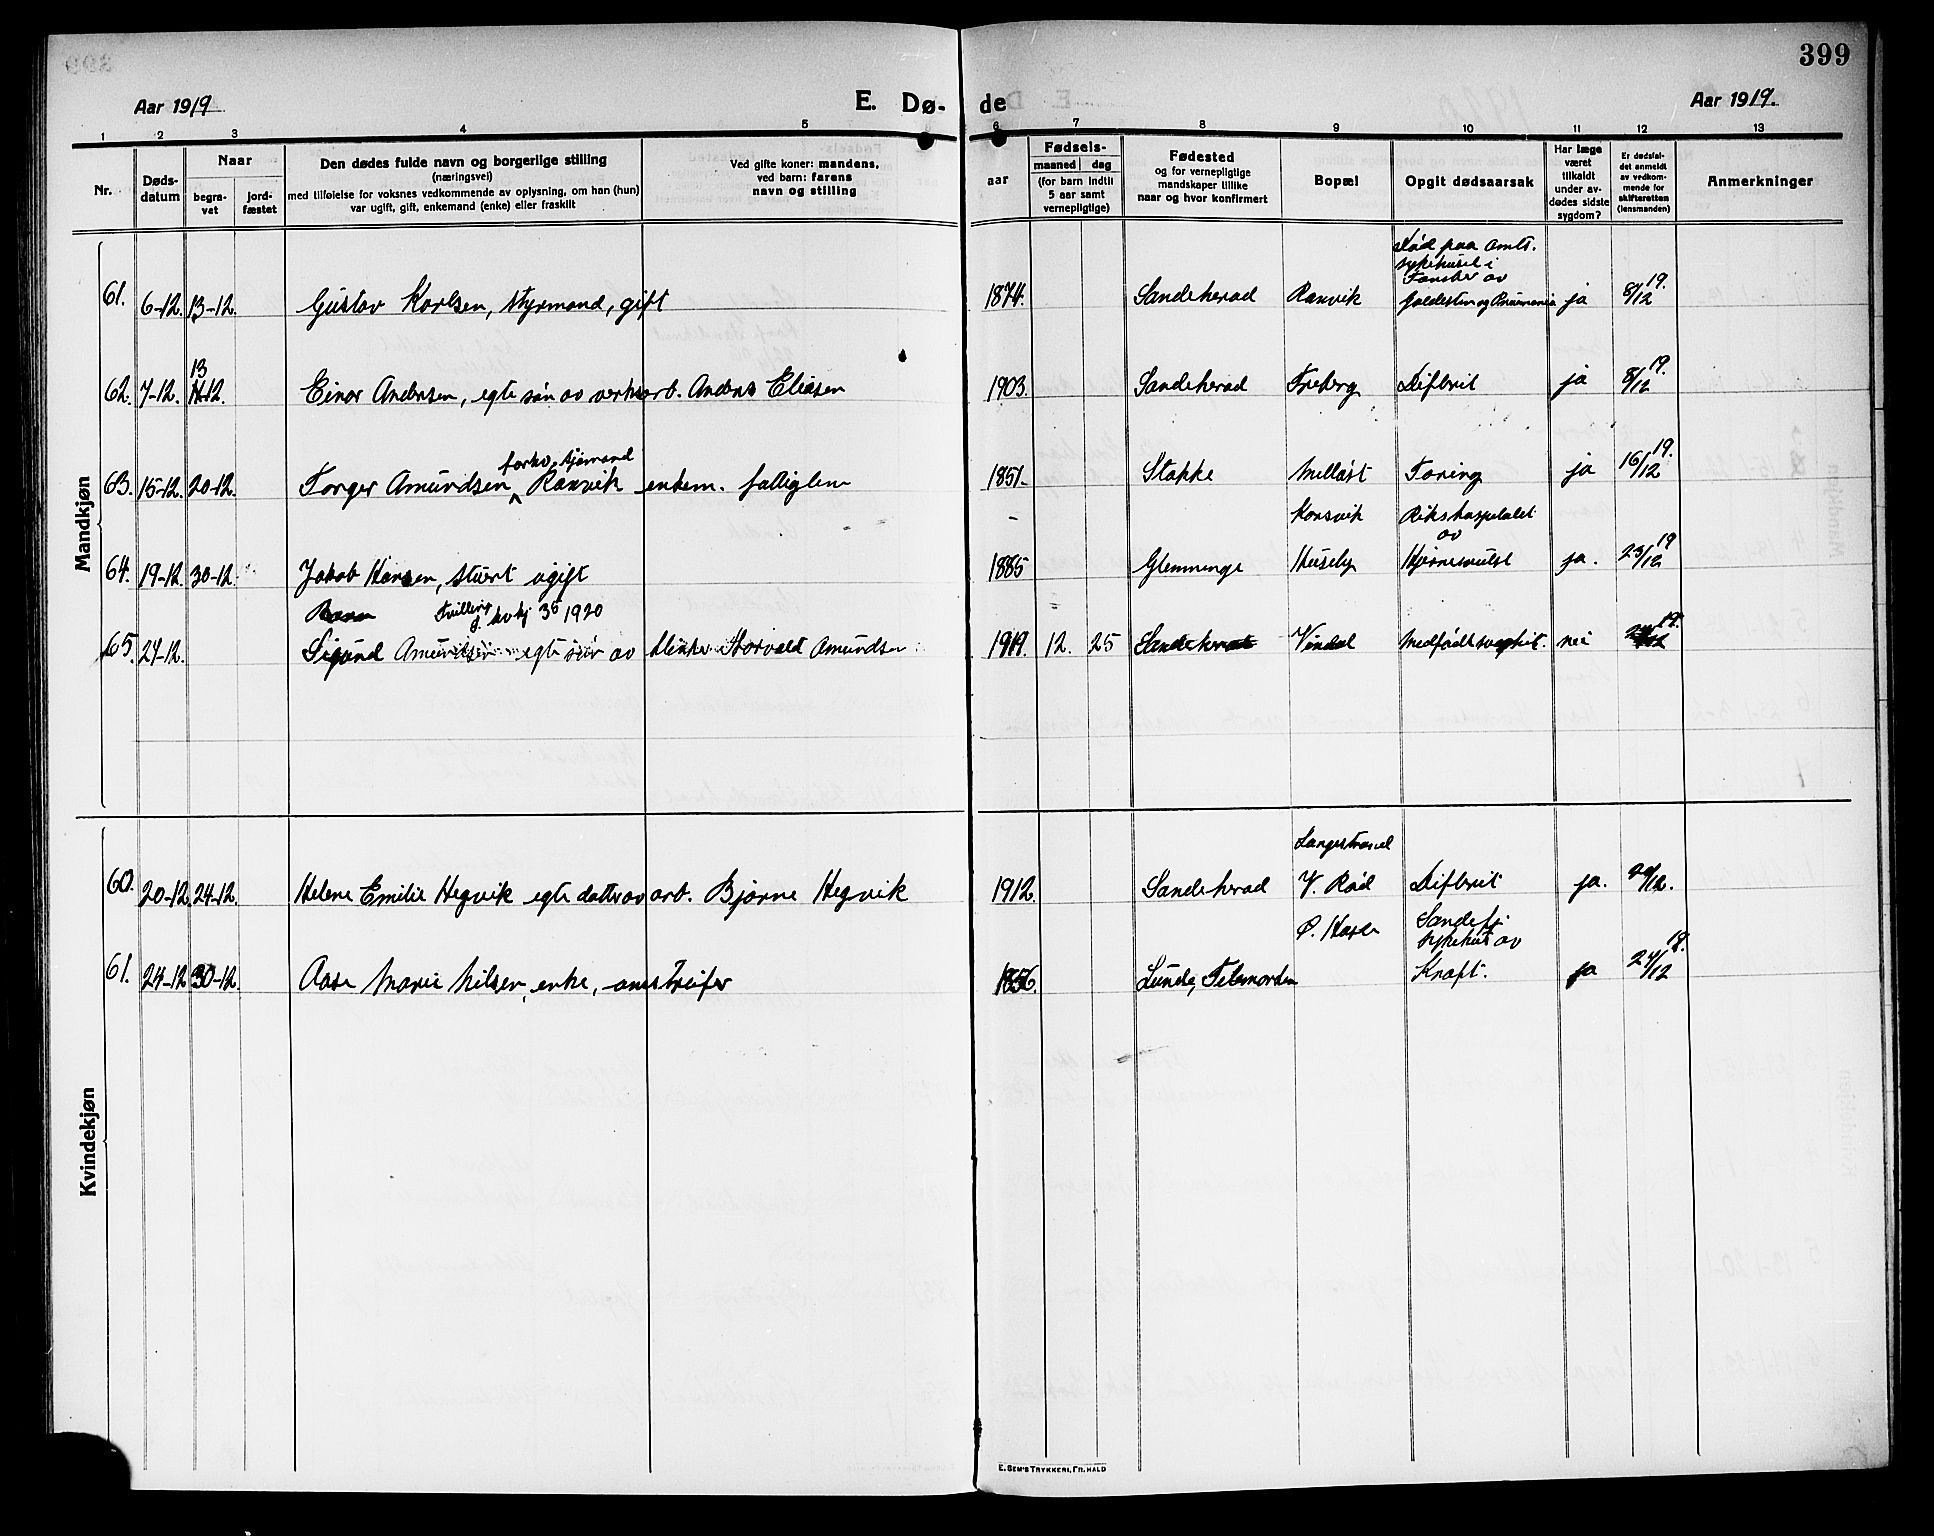 399
Aar 1919
E. Dø-
de
Aar 1919.
1 2 3 4 5 6 7 8 9 10 11 12 13
Nr.
Døds-
datum
Naar
begra-
vet
jord-
fæstet
Den dødes fulde navn og borgerlige stilling
(næringsvei)
med tilføielse for voksnes vedkommende av oplysning, om han (hun)
var ugift, gift, enkemand (enke) eller fraskilt
Ved gifte koner: mandens,
ved barn: farens
navn og stilling
aar
Fødsels-
maaned dag
(for barn indtil
5 aar samt
vernepligtige)
Fødested
og for vernepligtige
mandskaper tillike
naar og hvor konfirmert
Bopæl
Opgit dødsaarsak
Har læge
været
tilkaldt
under av-
dødes sidste
sygdom?
Er dødsfal-
det anmeldt
av vedkom-
mende for
skifteretten
(lensmanden)
Anmerkninger
Mandkjøn
død paa amts.
sykehuset i
Tønsber av
61. 6-12. 13-12. Gustav Karlsen, styrmand, gift 1874. Sandeherad Ranvik galdesten og Pneumonia ja 8/12 19.
13
62. 7-12. 12. Einar Andersen, egte søn av verksarb. Anders Eliasen 1903. Sandeherad Freberg Difterit ja 8/12 19.
forhv. sjømand
63. 15-12. 20-12. Torger Amundsen Ranvik enkem. fattiglem 1851. Stokke Melløst Tæring ja 16/12 19.
Korsvik Rikshospitalet
av
64. 19-12. 30-12. Jakob Hansen, stuert ugift 1885 Glemminge Huseby Hjernesvulst ja. 23/12 19
Tvilling kvkj 36 1920
65. 27-12. Sigurd Amundsen egte søn av klinker Thorvald Amundsen 1919. 12. 25 Sandeherad Vindal Medfødt svakhet. nei 19.
Kvindekjøn
Langestrand
60. 20-12 24-12. Helene Emilie Hegvik egte datter av arb. Bjarne Hegvik 1912. Sandeherad V. Rød Difterit ja. /12.
Ø. Hasle Sandefj.
sykehus av
61. 24-12 30-12. Aase Marie Nilsen, enke, omstreifer 1856. Lunde, Telemarken Kræft. ja 27/12 19.
E. SEM'S TRYKKERI, FR.HALD